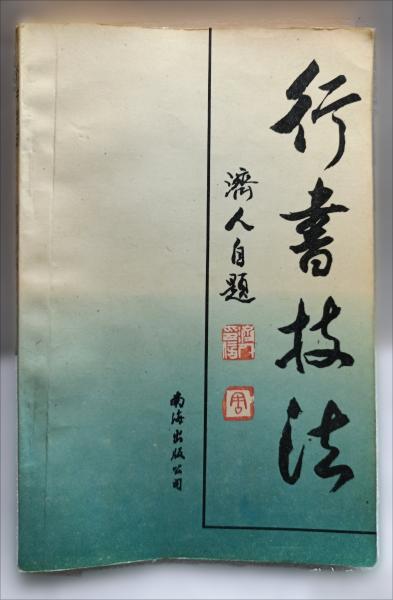 行書技法
濟人自題
南海出版公司